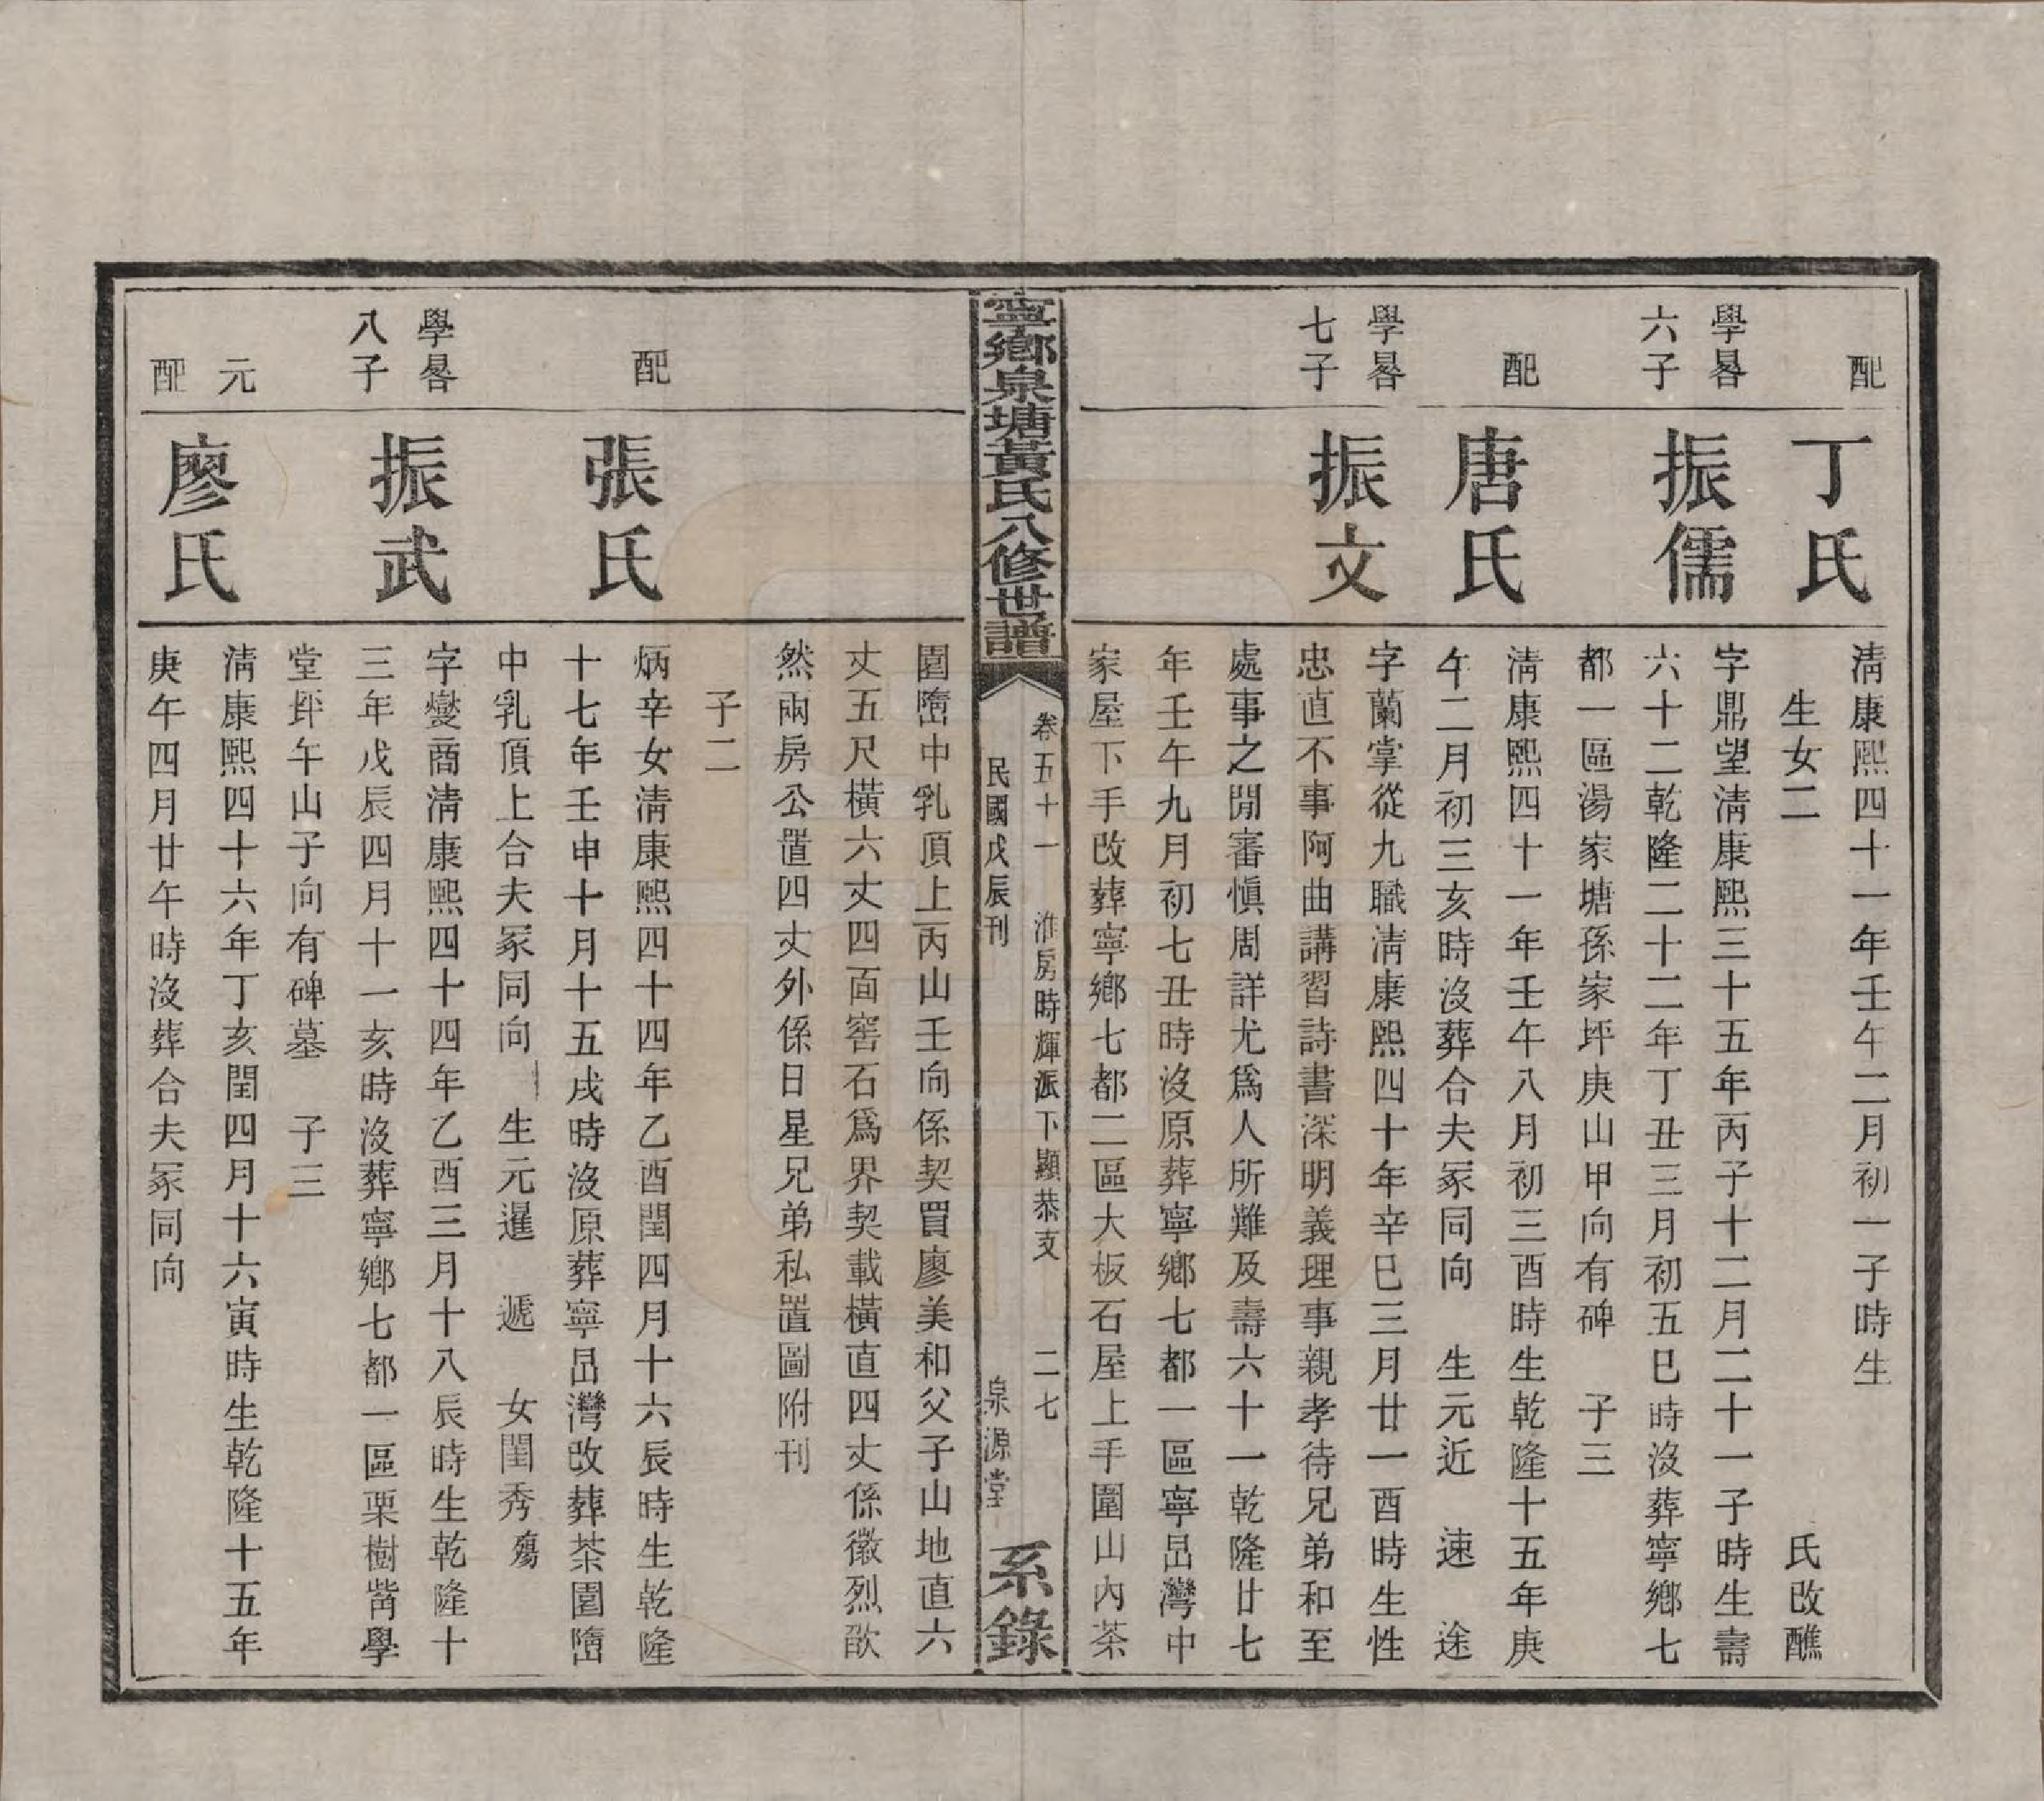 配
丁氏
清康熙四十一年壬午二月初一子時生
生女二　氏改醮
學晷六子
振儒
字鼎望清康熙三十五年丙子十二月二十一子時生壽
六十二乾隆二十二年丁丑三月初五巳時沒葬寧鄉七
都一區湯家塘孫家坪庚山甲向有碑　子三
配
唐氏
清康熙四十一年壬午八月初三酉時生乾隆十五年庚
午二月初三亥時沒葬合夫冢同向　生元近　速　途
學晷七子
振文
字蘭掌從九職清康熙四十年辛巳三月廿一酉時生性
忠直不事阿曲講習詩書深明義理事親孝待兄弟和至
處事之閒審慎周詳尤爲人所難及壽六十一乾隆廿七
年壬午九月初七丑時沒原葬寧鄉七都一區寧邑灣中
家屋下手改葬寧鄉七都二區大板石屋上手圍山內茶
寧鄉泉塘黃氏八修世譜
卷五十一　淮房時輝派下顯恭支　二七
民國戊辰刊　泉源堂
系錄
園𡺾中乳頂上丙山壬向係契買廖美和父子山地直六
丈五尺橫六丈四面窖石爲界契載橫直四丈係徽烈歆
然兩房公置四丈外係日星兄弟私置圖附刊
子二
配
張氏
炳辛女清康熙四十四年乙酉閏四月十六辰時生乾隆
十七年壬申十月十五戌時沒原葬寧邑灣改葬茶園𡺾
中乳頂上合夫冢同向　生元暹　遞　女閨秀殤
學晷八子
振武
字燮商清康熙四十四年乙酉三月十八辰時生乾隆十
三年戊辰四月十一亥時沒葬寧鄉七都一區栗樹嵴學
堂坪午山子向有碑墓　子三
元配
廖氏
清康熙四十六年丁亥閏四月十六寅時生乾隆十五年
庚午四月廿午時沒葬合夫冢同向